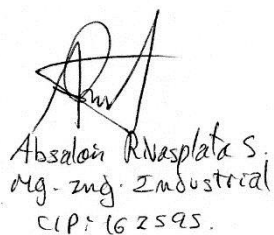 Absalón Rivasplata S.
Mg. Ing. Industrial
CIP: 162595.